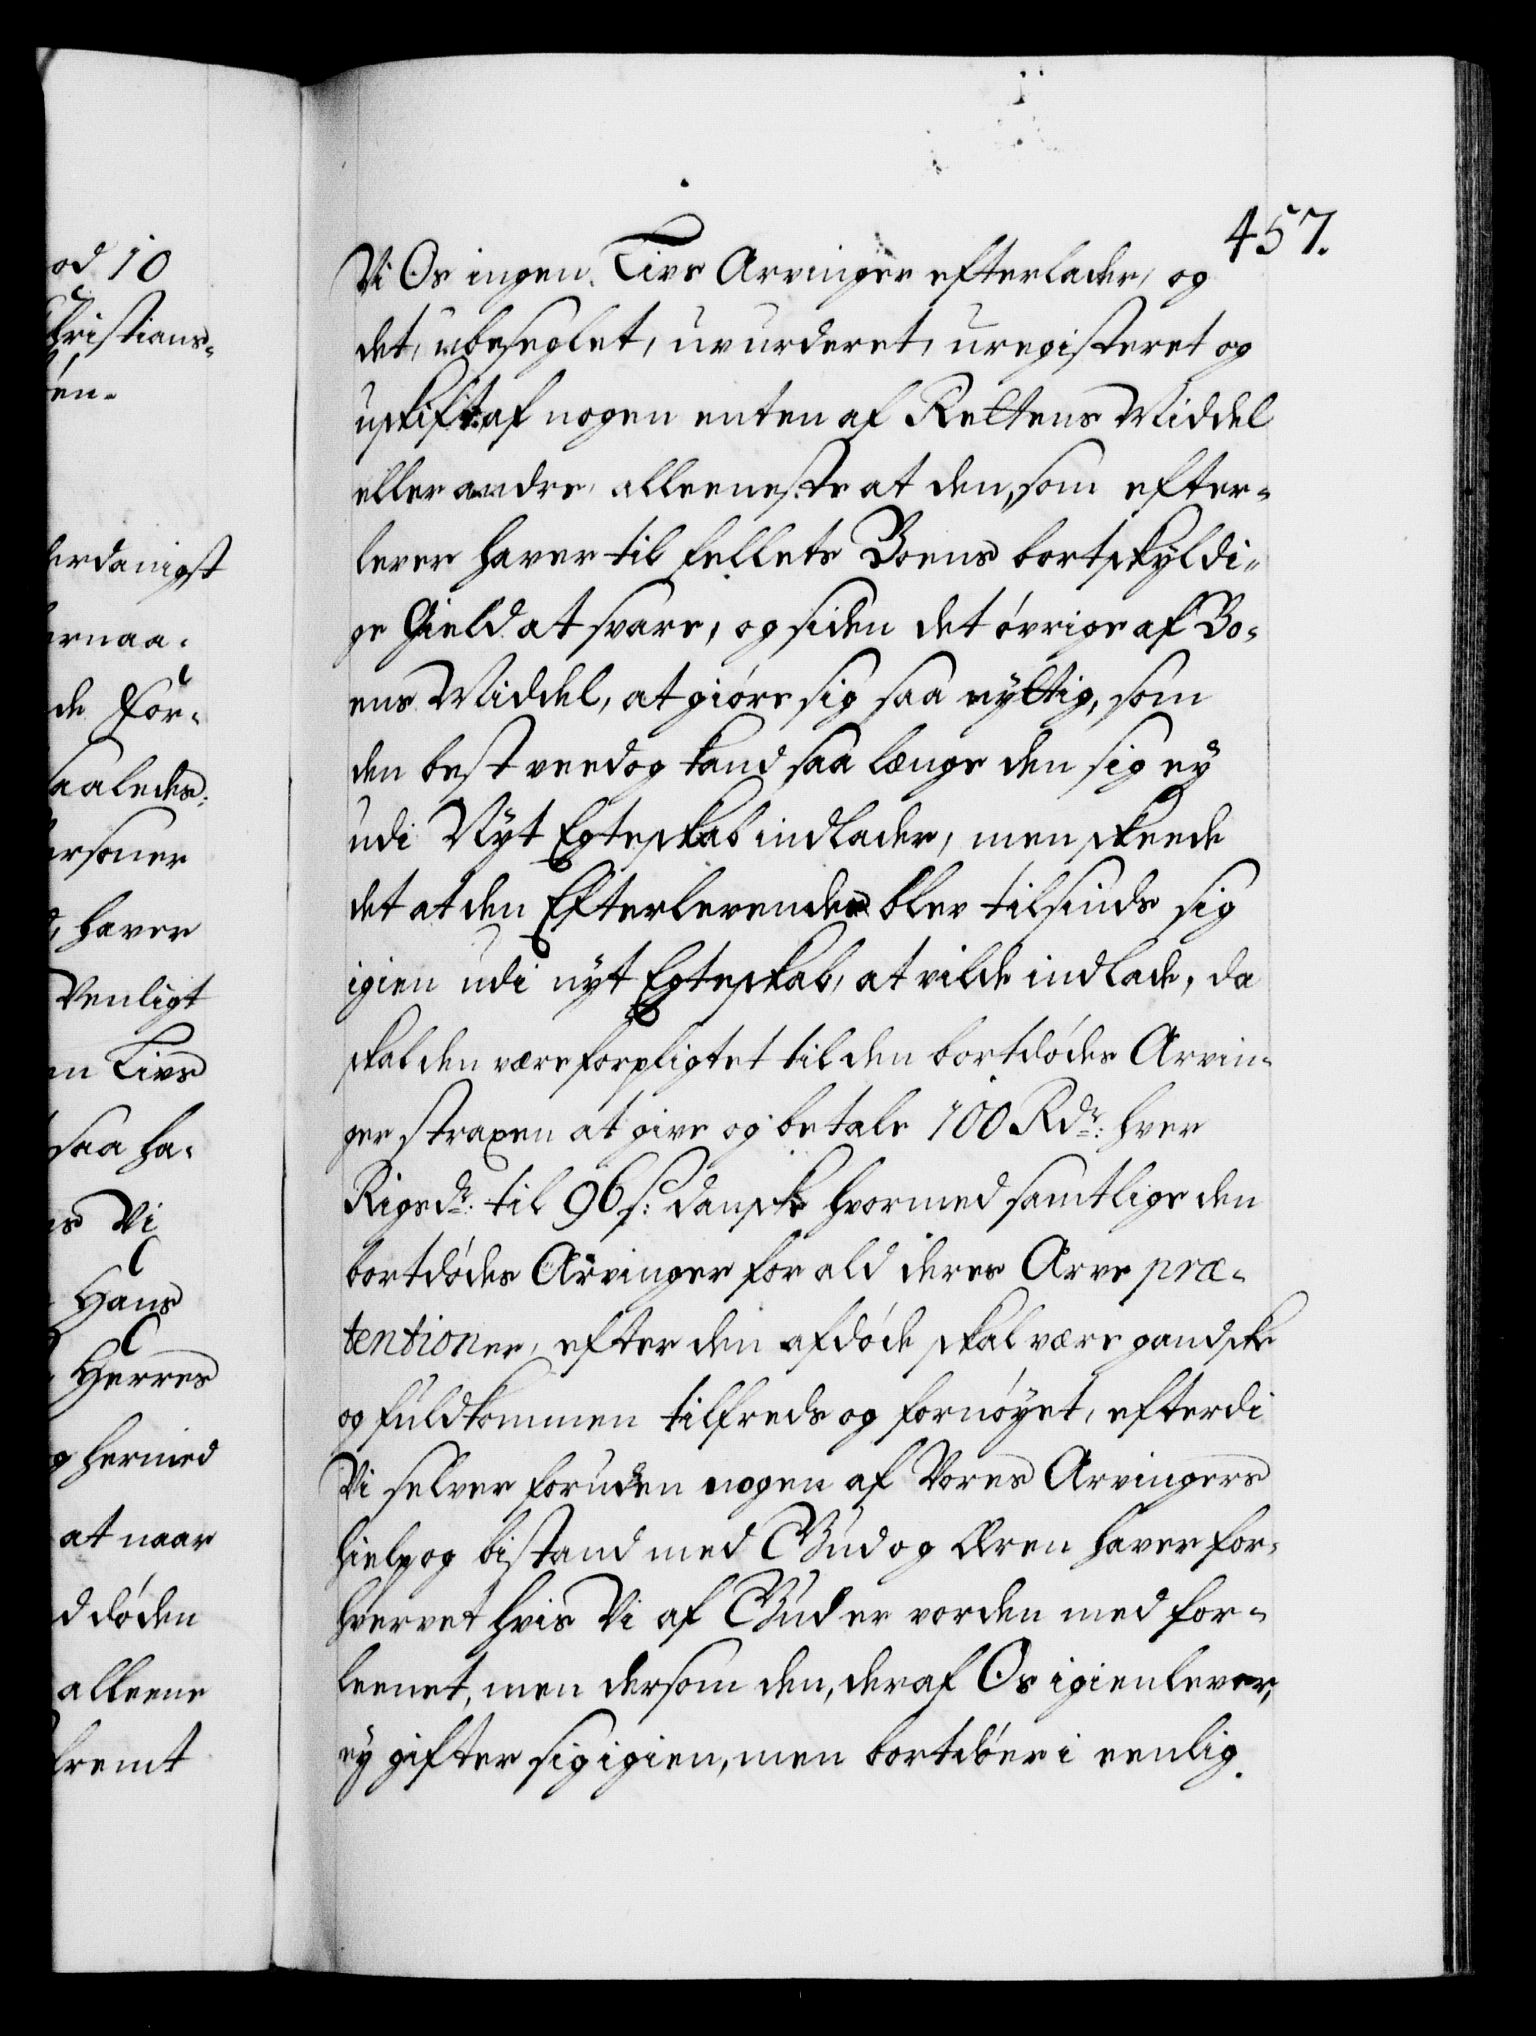 457.
Vi Os ingen Livs Arvinger efterlader, og
det, ubeseglet, uvurderet, uregisteret og
uskift af nogen enten af Rettens Middel
eller andre, alleeneste at den, som efter-
lever haver til fellets Boens bortskyldi-
ge Gield at svare, og siden det øvrige af Bo-
ens Middel, at giøre sig saa nyttig, som
den best veed og kand saa længe den sig ey
udi Nyt Egteskab indlader, men skeede
det at den Efterlevende blev tilsinds sig
igien udi nyt Egteskab, at vilde indlade, da
skal den være forpligtet til den bortdødes Arvin-
ger straxen at give og betale 100 Rdr: hver
Rigsdr: til 96 s: danske hvormed samtlige den
bortdødes Arvinger for ald deres Arve præ-
tentioner, efter den afdøde skal være gandske
og fuldkommen tilfreds og fornøyet, efterdi
Vi selver foruden nogen af Vores Arvingers
hielp og bistand med Gud og Æren haver for-
hvervet hvis Vi af Gud er vorden med for-
leenet, men dersom den, der af Os igienlever,
ey gifter sig igien, men bortdøer i eenlig
od 10
Christians-
en-
erdanigst
ernaa-
de For-
saaledes:
ersoner
, haver
Venligt
en Livs
saa ha-
es Vi
Hans
Herres
g hermed
at naar
d døden
alleene
fremt